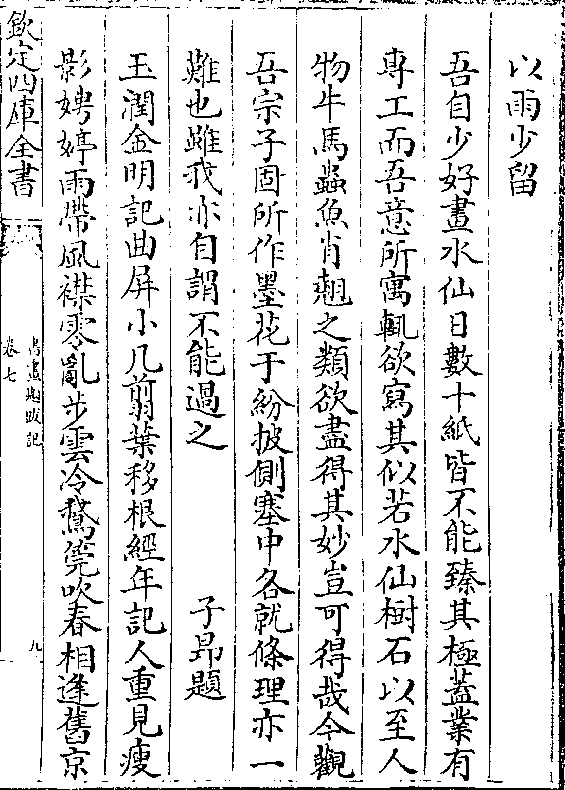 以雨少留
吾自少好畫水仙日數十紙皆不能臻其極蓋業有
專工而吾意所寓輒欲寫其似若水仙樹石以至人
物牛馬蟲魚肖翹之類欲盡得其妙豈可得哉今觀
吾宗子固所作墨花于紛披側塞中各就條理亦一
難也雖我亦自謂不能過之 子昂題
玉潤金明記曲屏小几翦葉移根經年記人重見瘦
影娉婷雨帶風襟零亂步雲冷鵞筦吹春相逢舊京
欽定四庫全書
書畫題跋記
卷七
九